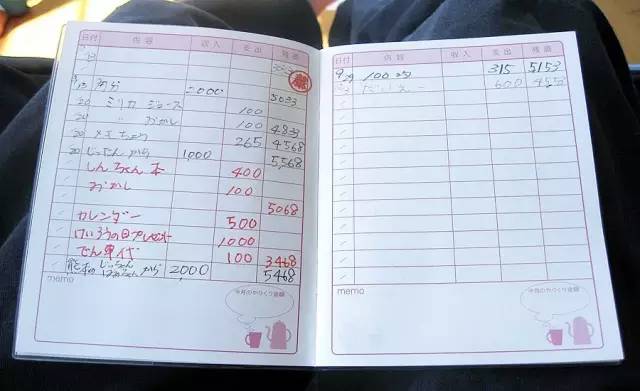 日付 内容 収入 支出 残高
9/13 前分 2000 5033
20 ミリカ ジュース 100
20 〃 おかし 100 4833
20 メモちょう 265 4568
20 じっちゃんから 1,000 5,568
しんちゃん 本 400
おかし 100 5068
カレンダー 500
けいろうの日プレゼント 1000
でん車代 100 3468
熊本のじっちゃん ばあちゃんから 2,000 5468
memo
今月のやりくり金額
日付 内容 収入 支出 残高
9/29 100均 315 5153
600 4553
memo
今月のやりくり金額